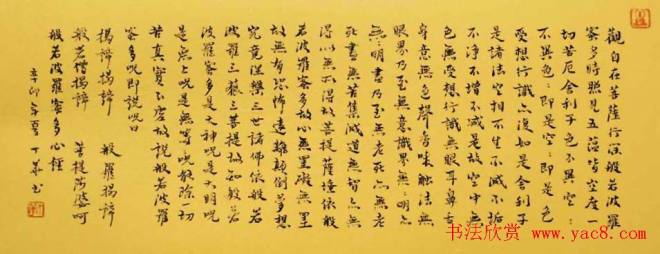 觀自在菩薩行深般若波羅
蜜多時照見五蘊皆空度一
切苦厄舍利子色不異空空
不異色色即是空空即是色
受想行識亦復如是舍利子
是諸法空相不生不滅不垢
不淨不增不減是故空中無
色無受想行識無眼耳鼻舌
身意無色聲香味觸法無
眼界乃至無意識界無無明亦
無無明盡乃至無老死亦無老
死盡無苦集滅道無智亦無
得以無所得故菩提薩埵依般
若波羅蜜多故心無罣礙無罣
故無有恐怖遠離顛倒夢想
究竟涅槃三世諸佛依般若
波羅三藐三菩提故知般若
波羅蜜多是大神咒是大明咒
是無上咒是無等咒能除一切
苦真實不虛故說般若波羅
蜜多咒即說咒曰
揭諦揭諦 般羅揭諦
般若僧揭諦 菩提薩婆呵
般若波羅蜜多心經
辛卯年夏丁 書
书法欣赏 www.yac8.com